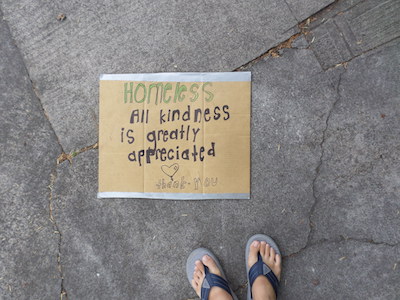 HOMELESS
All kindness
is greatly
appreciated
thank-you